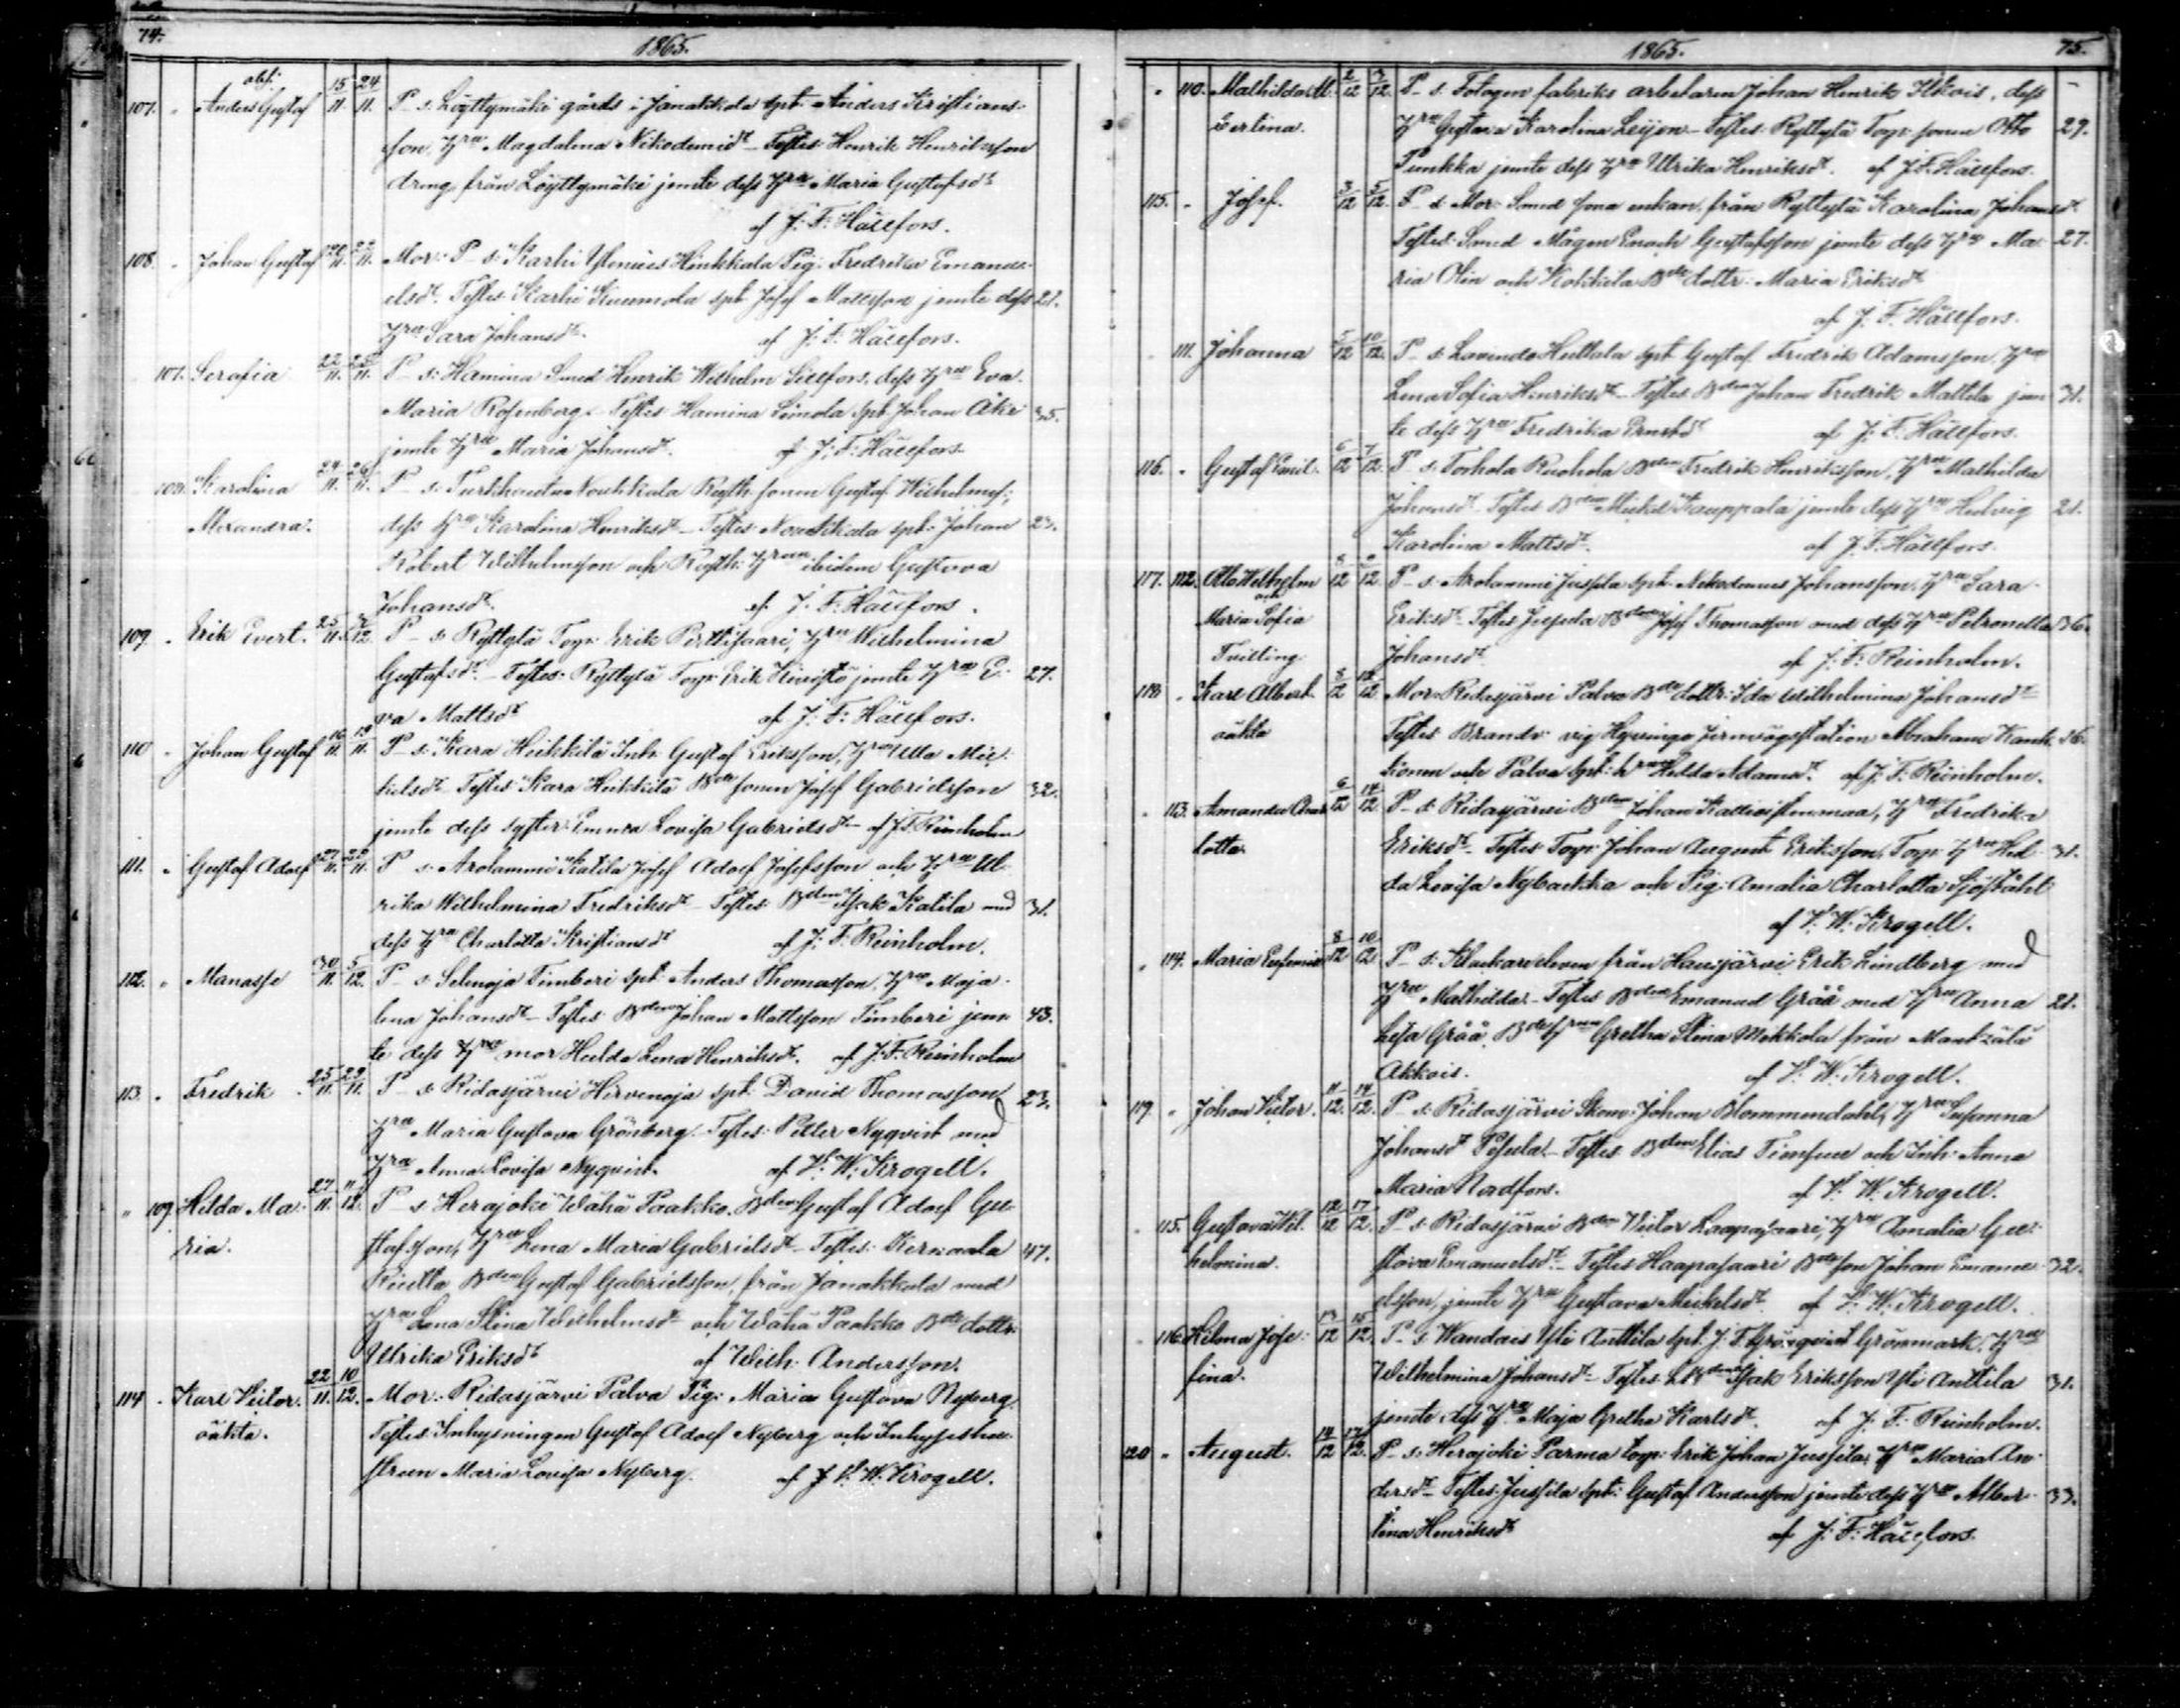 74.
1865.
obs:
107. " Anders Gustaf 15/11. 24/11. P_ s: Löyttymäki gårds i Janakkala spt: Anders Kristians-
son, Hru Magdalena Nikodemidr_ Testes Henrik Henriksson
dräng från Löyttymäki jemte dess Hru Maria Gustafsdr
af J: F: Hällfors.
108. " Johan Gustaf 20/11. 22/11. Mor: P_ s: Karhi Hinkkala Pig: Fredrika Emanu-
elsdr. Testes: Karhi spt: Josef Mattsson jemte dess 21.
Hru Sara Johansdr. af J: F: Hällfors.
107. Serafia 22/11. 25/11. P_ s: Hamina Smed Henrik Wilhelm Sillfors, dess Hru Eva
Maria Rosenberg. Testes Hamina Simola spt: Johan Åke 35.
jemte Hru Maria Johansdr. af J: F: Hällfors.
108. Karolina 24/11. 26/11. P_ s: Turkhauta Noukkala Ryth: sonen Gustaf Wilhelmss:
Alexandra. dess Hru Karolina Henriksdr_ Testes Nouskkala spt: Johan 23.
Robert Wilhelmsson och Ryth: Hrun ibidem Gustava
Johansdr. af J: F: Hällfors.
109. " Erik Evert. 25/11. /12. P_ s: Ryttylä Torp: Erik Perttisaari, Hru Wilhelmina
Gustafsdr._ Testes: Ryttylä Torp: Erik Kivistö jemte Hru E- 27.
va Mattsdr af J: F: Hällfors.
110 " Johan Gustaf 16/11. 19/11. P_ s: Kara Heikkilä Inh: Gustaf Eriksson, Hru Ulla Mic-
kelsdr_ Testes Kara Heikkilä Bde sonen Josef Gabrielsson 32.
jemte dess syster Emma Lovisa Gabrielsdr_ af J. F. Reinholm
111. " Gustaf Adolf 27/11. 29/11. P_ s: Arolammi Katila Josef Adolf Josefsson och Hru Ul-
rika Wilhelmina Fredriksdr_ Testes: Bden Isak Katila med 31.
dess Hru Charlotta Kristiansdr af J: F: Reinholm.
112. " Manasse 30/11. 5/12. P_ s: Selänoja Timberi spt: Anders Thomasson, Hru Maja-
lena Johansdr_ Testes: Bden Johan Mattsson Timberi jem- 43.
te dess Hru mor Hulda Lena Henriksdr. af J. F. Reinholm
113. " Fredrik 25/11. 29/11. P_ s: Ridasjärvi Hirvenoja spt: David Thomasson, 23.
Hru Maria Gustava Grönberg. Testes: Petter Nyqvist med
Hru Anna Lovisa Nyqvist. af V. W. Krogell.
" 109 Hilda Ma- 27/11. /12. P_ s: Herajoki Wähä Paakko. Bden Gustaf Adolf Gu-
ria. stafsson, Hru Lena Maria Gabrielsdr_ Testes: Kernaala 47.
Bden Gustaf Gabrielsson, från Janakkala med
Hru Lena Stina Wilhelmsdr och Wähä Paakko Bde dottr:
Ulrika Eriksdr af Wilh: Andersson.
114 " Karl Viktor. 22/11. 10/12. Mor: Ridasjärvi Palva Pig: Maria Gustava Nyberg.
oäkta. Testes: Inhysningen Gustaf Adolf Nyberg och Inhyses hu-
strun Maria Lovisa Nyberg. af V. W. Krogell.
1865. 75.
" 110. Mathilda M. 2/12 3/12. P_ s: Fotogen fabriks arbetaren Johan Henrik Ilkois, dess
Gustava Karolina Leijon_ Testes: Ryttylä Torp: sonen Otto 29.
Punkka jemte dess Hru Ulrika Henriksdr. af J. F. Hällfors.
115. " Josef. 3/12 5/12. P_ s: Mor: Smed sona enkan, från Ryttylä Karolina Johansdr
Testes: Smed Mågen Enoch Gustafsson jemte dess Hru Ma- 27.
ria Olin och Kokkila Bde dottr: Maria Eriksdr
af J. F. Hällfors.
111. Johanna 5/12 10/12. P_ s: Huttala spt: Gustaf Fredrik Adamsson, Hru
Lena Sofia Henriksdr_ Testes Bden Johan Fredrik Mattila jem- 31.
te dess Hru Fredrika af J: F. Hällfors.
116. " Gustaf Emil. 6/12 7/12. P_ s: Torhola Ruohola Bden Fredrik Henriksson, Hru Mathilda
Johansdr. Testes Bden Mickel Kauppala jemte dess Hru Hedvig 21.
Karolina Mattsdr. af J. F. Hällfors.
117. 112. Otto Wilhelm 8/12 /12. P_ s: Arolammi Jussila spt: Nikodemus Johansson, Hru Sara
och
Maria Sofia Eriksdr_ Testes Jussila Bden Josef Thomasson med dess Hru Petronella 36.
Tvilling. Johansdr af J: F: Reinholm.
118 " Karl Albert. 8/12 12/12 Mor: Ridasjärvi Palva Bde dottr: Ida Wilhelmina Johansdr
oäkta Testes Brandv: vig Hyvinge Jernvägsstation Abraham Kank- 26.
konen och Palva spt: hru Hilda Adamsdr. af J: F: Reinholm.
" 113. Amanda Char- 6/12 14/12 P_ s: Ridasjärvi Bden Johan Kallioistenmaa, Hru Fredrika
lotta. Eriksdr_ Testes Torp: Johan August Eriksson, Torp: Hru Hil- 31.
da Lovisa Nybacka och Pig: Amalia Charlotta Sjöståhl
af V. W. Krogell.
" 114. Maria Eufemia 8/12 10/12 P_ s: Klockareleven från Hausjärvi Erik Lindberg med
Hru Mathilda_ Testes Bden Emanuel Gråå med Hru Anna 21.
Lisa Gråå, Bde Hrun Gretha Stina Mokkola från Mantzälä
Akkois. af V. W. Krogell.
119. " Johan Viktor. 11/12. 14/12. P_ s: Ridasjärvi Skom: Johan Blommendahl, Hru Susanna
Johansdr Pesula_ Testes Bden Elias och Inh: Anna
Maria Nordfors. af V. W. Krogell.
" 115. Gustava Wil- 12/12 17/12. P_ s: Ridasjärvi Bden Viktor Haapasaari, Hru Amalia Gu-
helmina. stava Emanuelsdr_ Testes Haapasaari Bde son Johan Emanu- 32.
elsson, jemte Hru Gustava Mickelsdr. af V. W. Krogell.
116. Hilma Jose- 13/12 15/12. P_ s: Wandais Yli Anttila spt: J. F. Grönqvist Grönmark, Hru
fina. Wilhelmina Johansdr_ Testes Bden Isak Eriksson Yli Anttila 31.
jemte dess Hru Maja Gretha Karlsdr. af J. F. Reinholm.
120 " August. 14/12 17/12. P_ s: Herajoki Parma torp: Erik Johan Jussila, Hru Maria An-
dersdr_ Testes: Jussila spt: Gustaf Andersson jemte dess Hru Alber- 33.
tina Henriksdr af J: F: Hällfors.